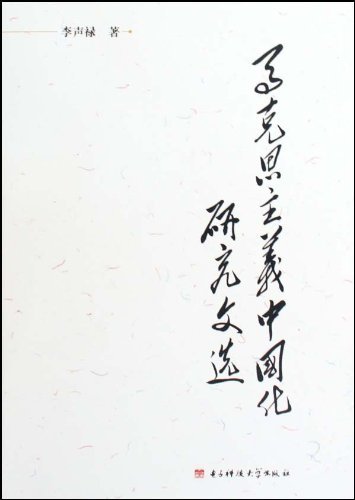 李声禄 著
马克思主义中国化
研究文选
电子科技大学出版社